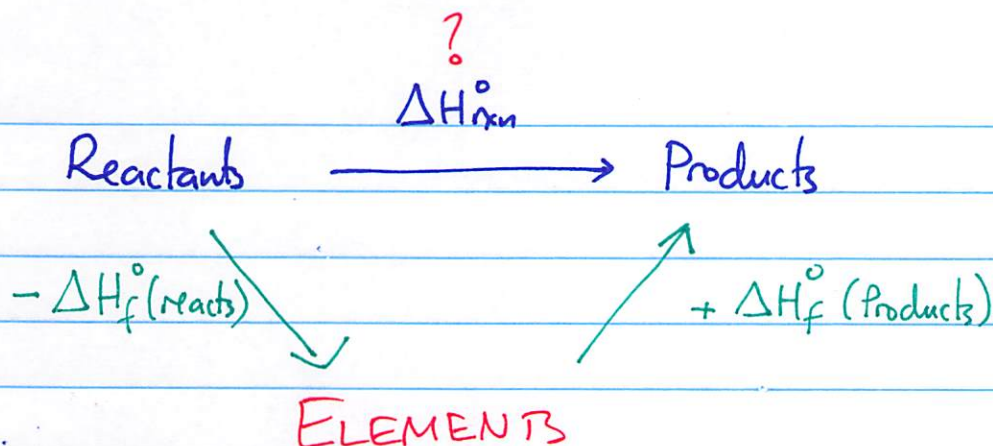 ?
ΔH°rxn
Reactants → Products
- ΔH°f (reacts) + ΔH°f (Products)
ELEMENTS